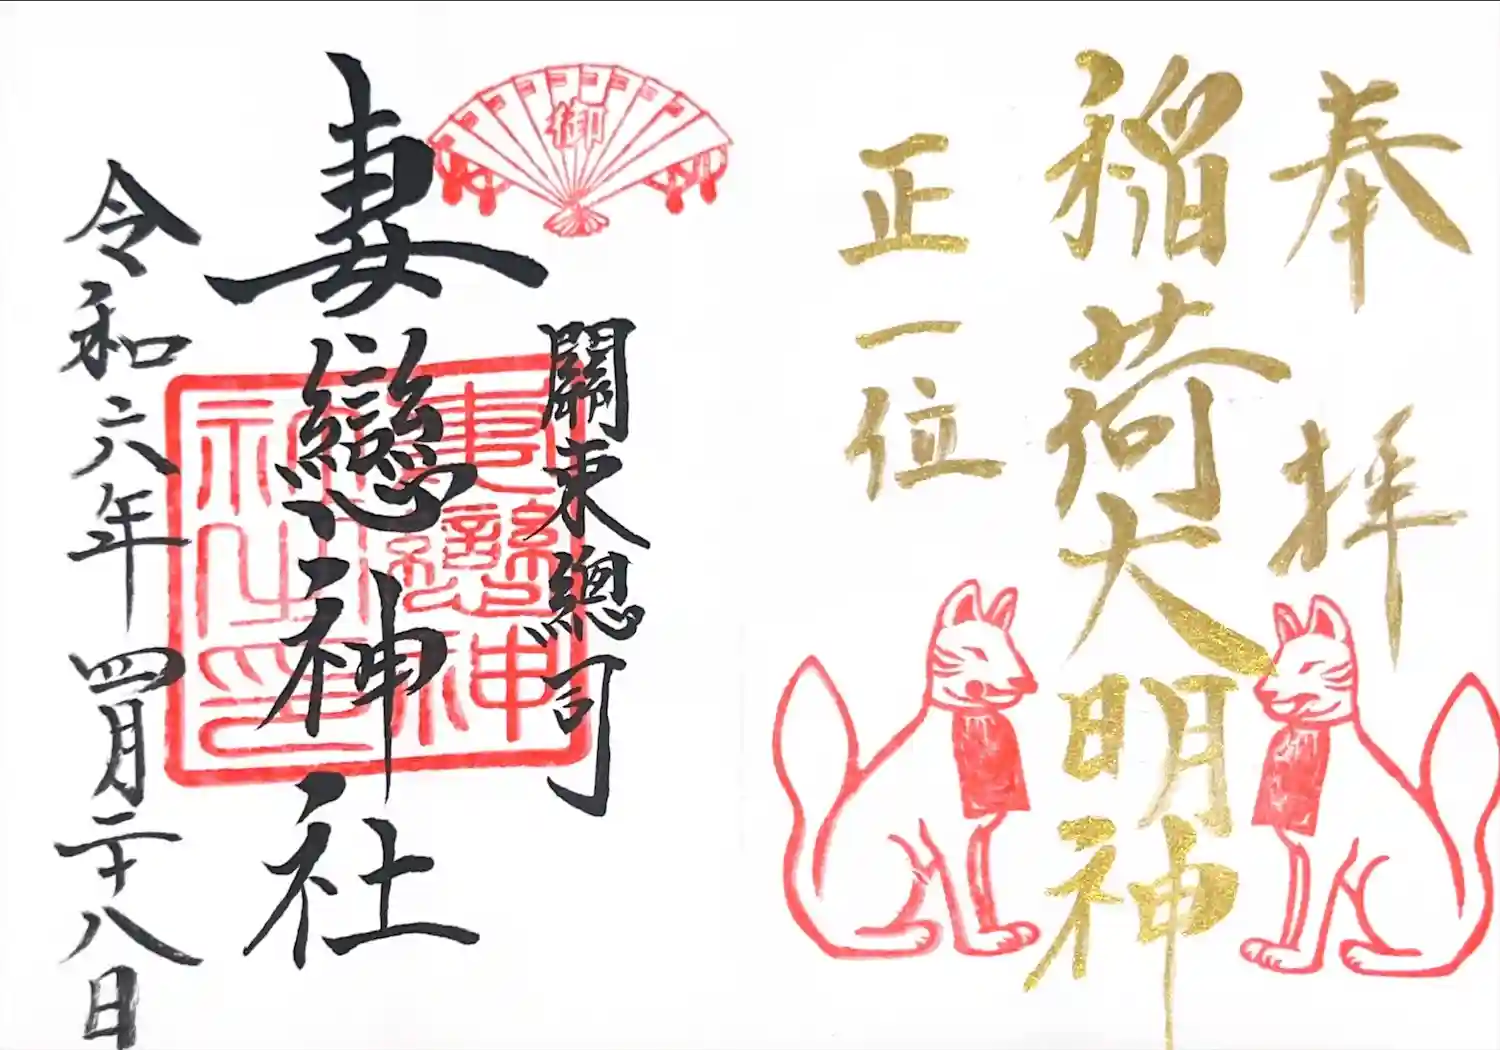 奉拝
稲荷大明神
正一位
御
關東總司
妻戀神社
妻戀神社神社之印
令和六年四月二十八日